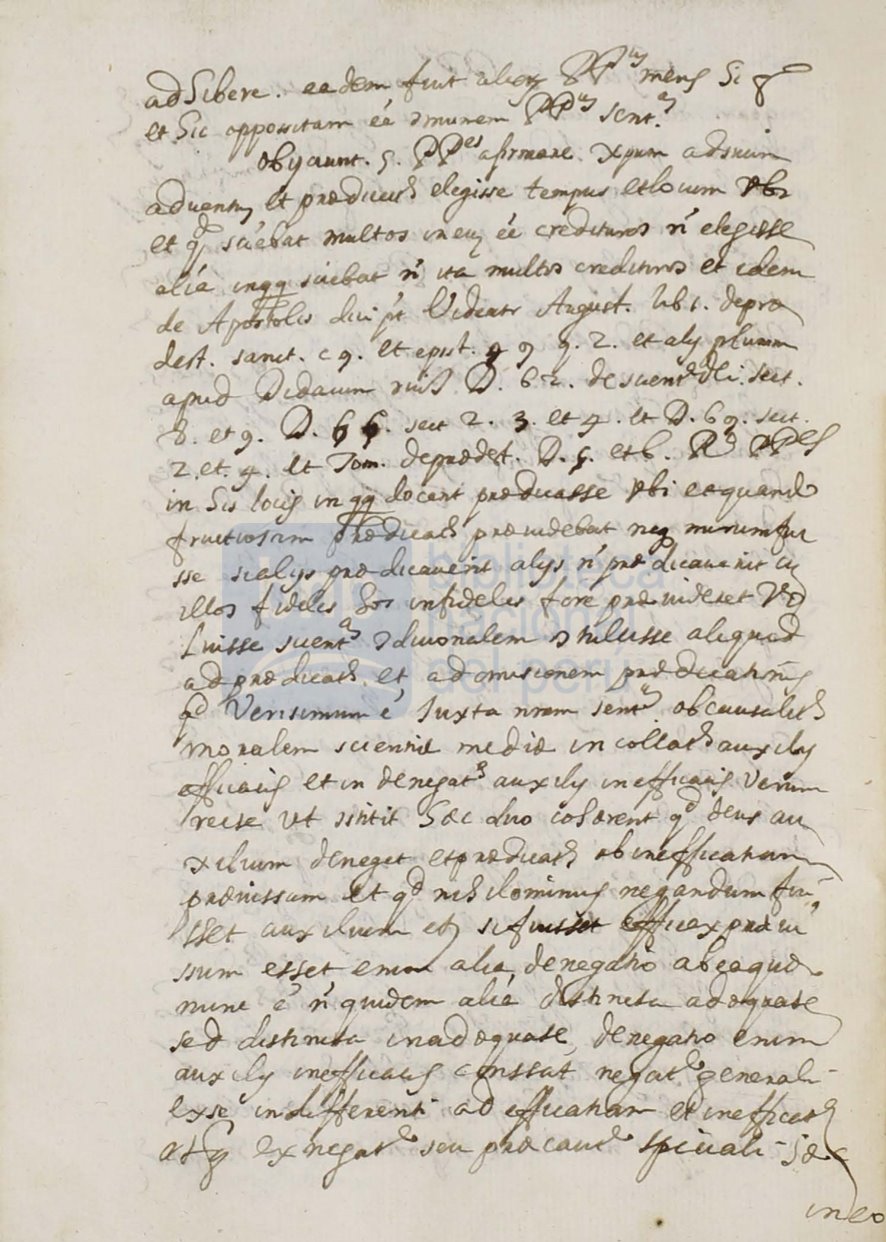 adhibere. eadem fuit alior PP.um mens
et sic oppositam eé PP.um sent.a
Obijciunt. 5. PP.es afirmare Xpum ad suum
adventu et prædicat elegisse tempus et locum Vbi
et qd sciebat multos in eu eé credituros ñ elegisse
alia in qq sciebat ñ ita multos credituros et idem
de Apostolis dici pt Videatr August. lib 1. de præ
dest. sanct. c 9. et epist. q. 2. et alij plurim
apud Didacum ruiz D. 62. de scient Dei. sect.
8. et 9. D. 66. sect 2. 3. et 4. et D. 69. sect.
2. et. 4. et Tom. de prædest. D. 5. et 6. PP.es
in his locis in qq docent prædicasse Vbi et quando
fructuosam prædicat prævidebat neq mirum fui
sse si alijs prædicaverit alijs ñ prædicaverit cu
illos fideles hos infideles fore prævideret
fuisse scient.am aliquid
ad prædicat et ad omisionem prædicationis
qd Verisimum é Juxta nram sent.am ob causalit
moralem scientiæ mediæ in collat auxilij
efficacis et in denegat auxilij inefficacis Verum
hæc duo cohærent qd deus au
xilium deneget et prædicat ob inefficatiam
prævissam et qd nihilominus negandum fui
sset auxilium si fuisset efficax prævi
ssum esset enim alia denegatio ab ea quæ
nunc é ñ quidem alia distincta adæquate
sed distincta inadæquate, denegatio enim
auxilij inefficacis negat generali
ex se indifferenti ad efficatiam et inefficat
ex negat seu
in eo
biblioteca
nacional
del perú